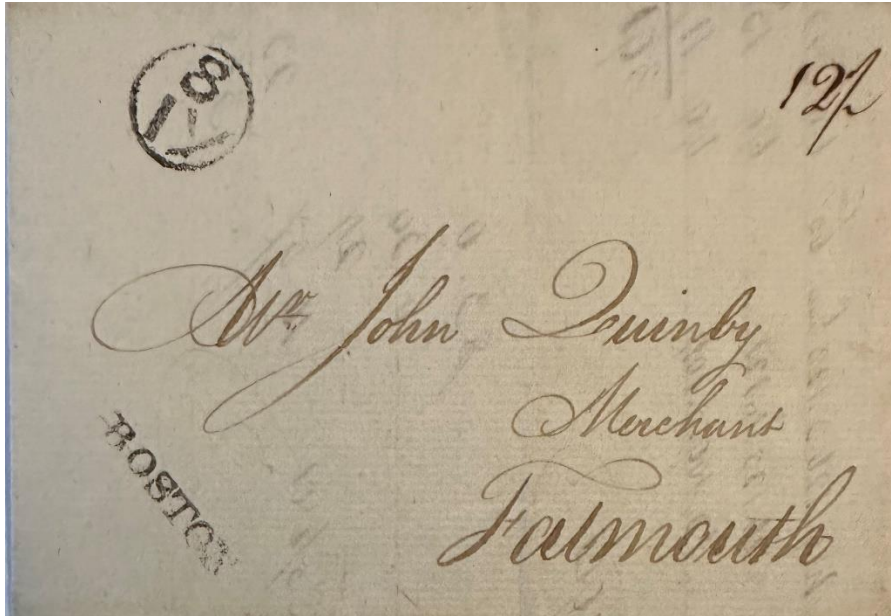 12/
Mr John Quinby
Merchant
Falmouth
BOSTON